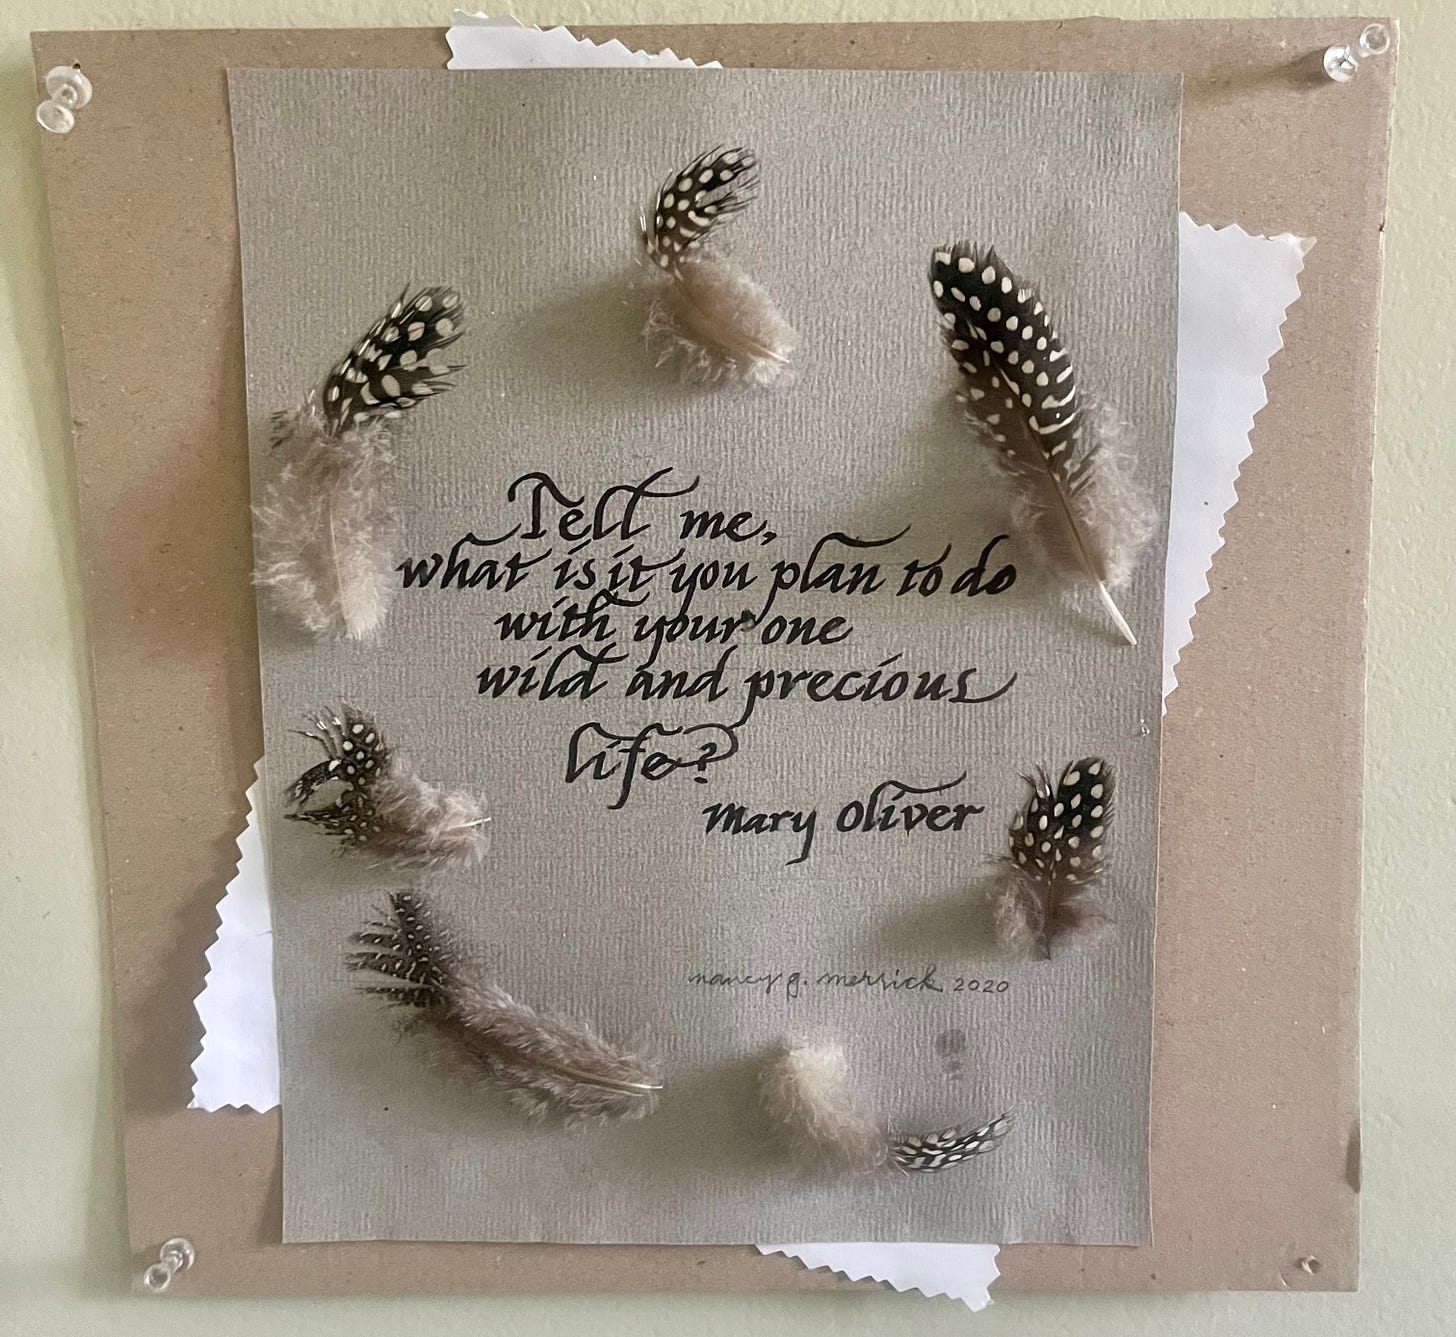 Tell me,
what is it you plan to do
with your one
wild and precious
life?
Mary Oliver
nancy g. merrick 2020